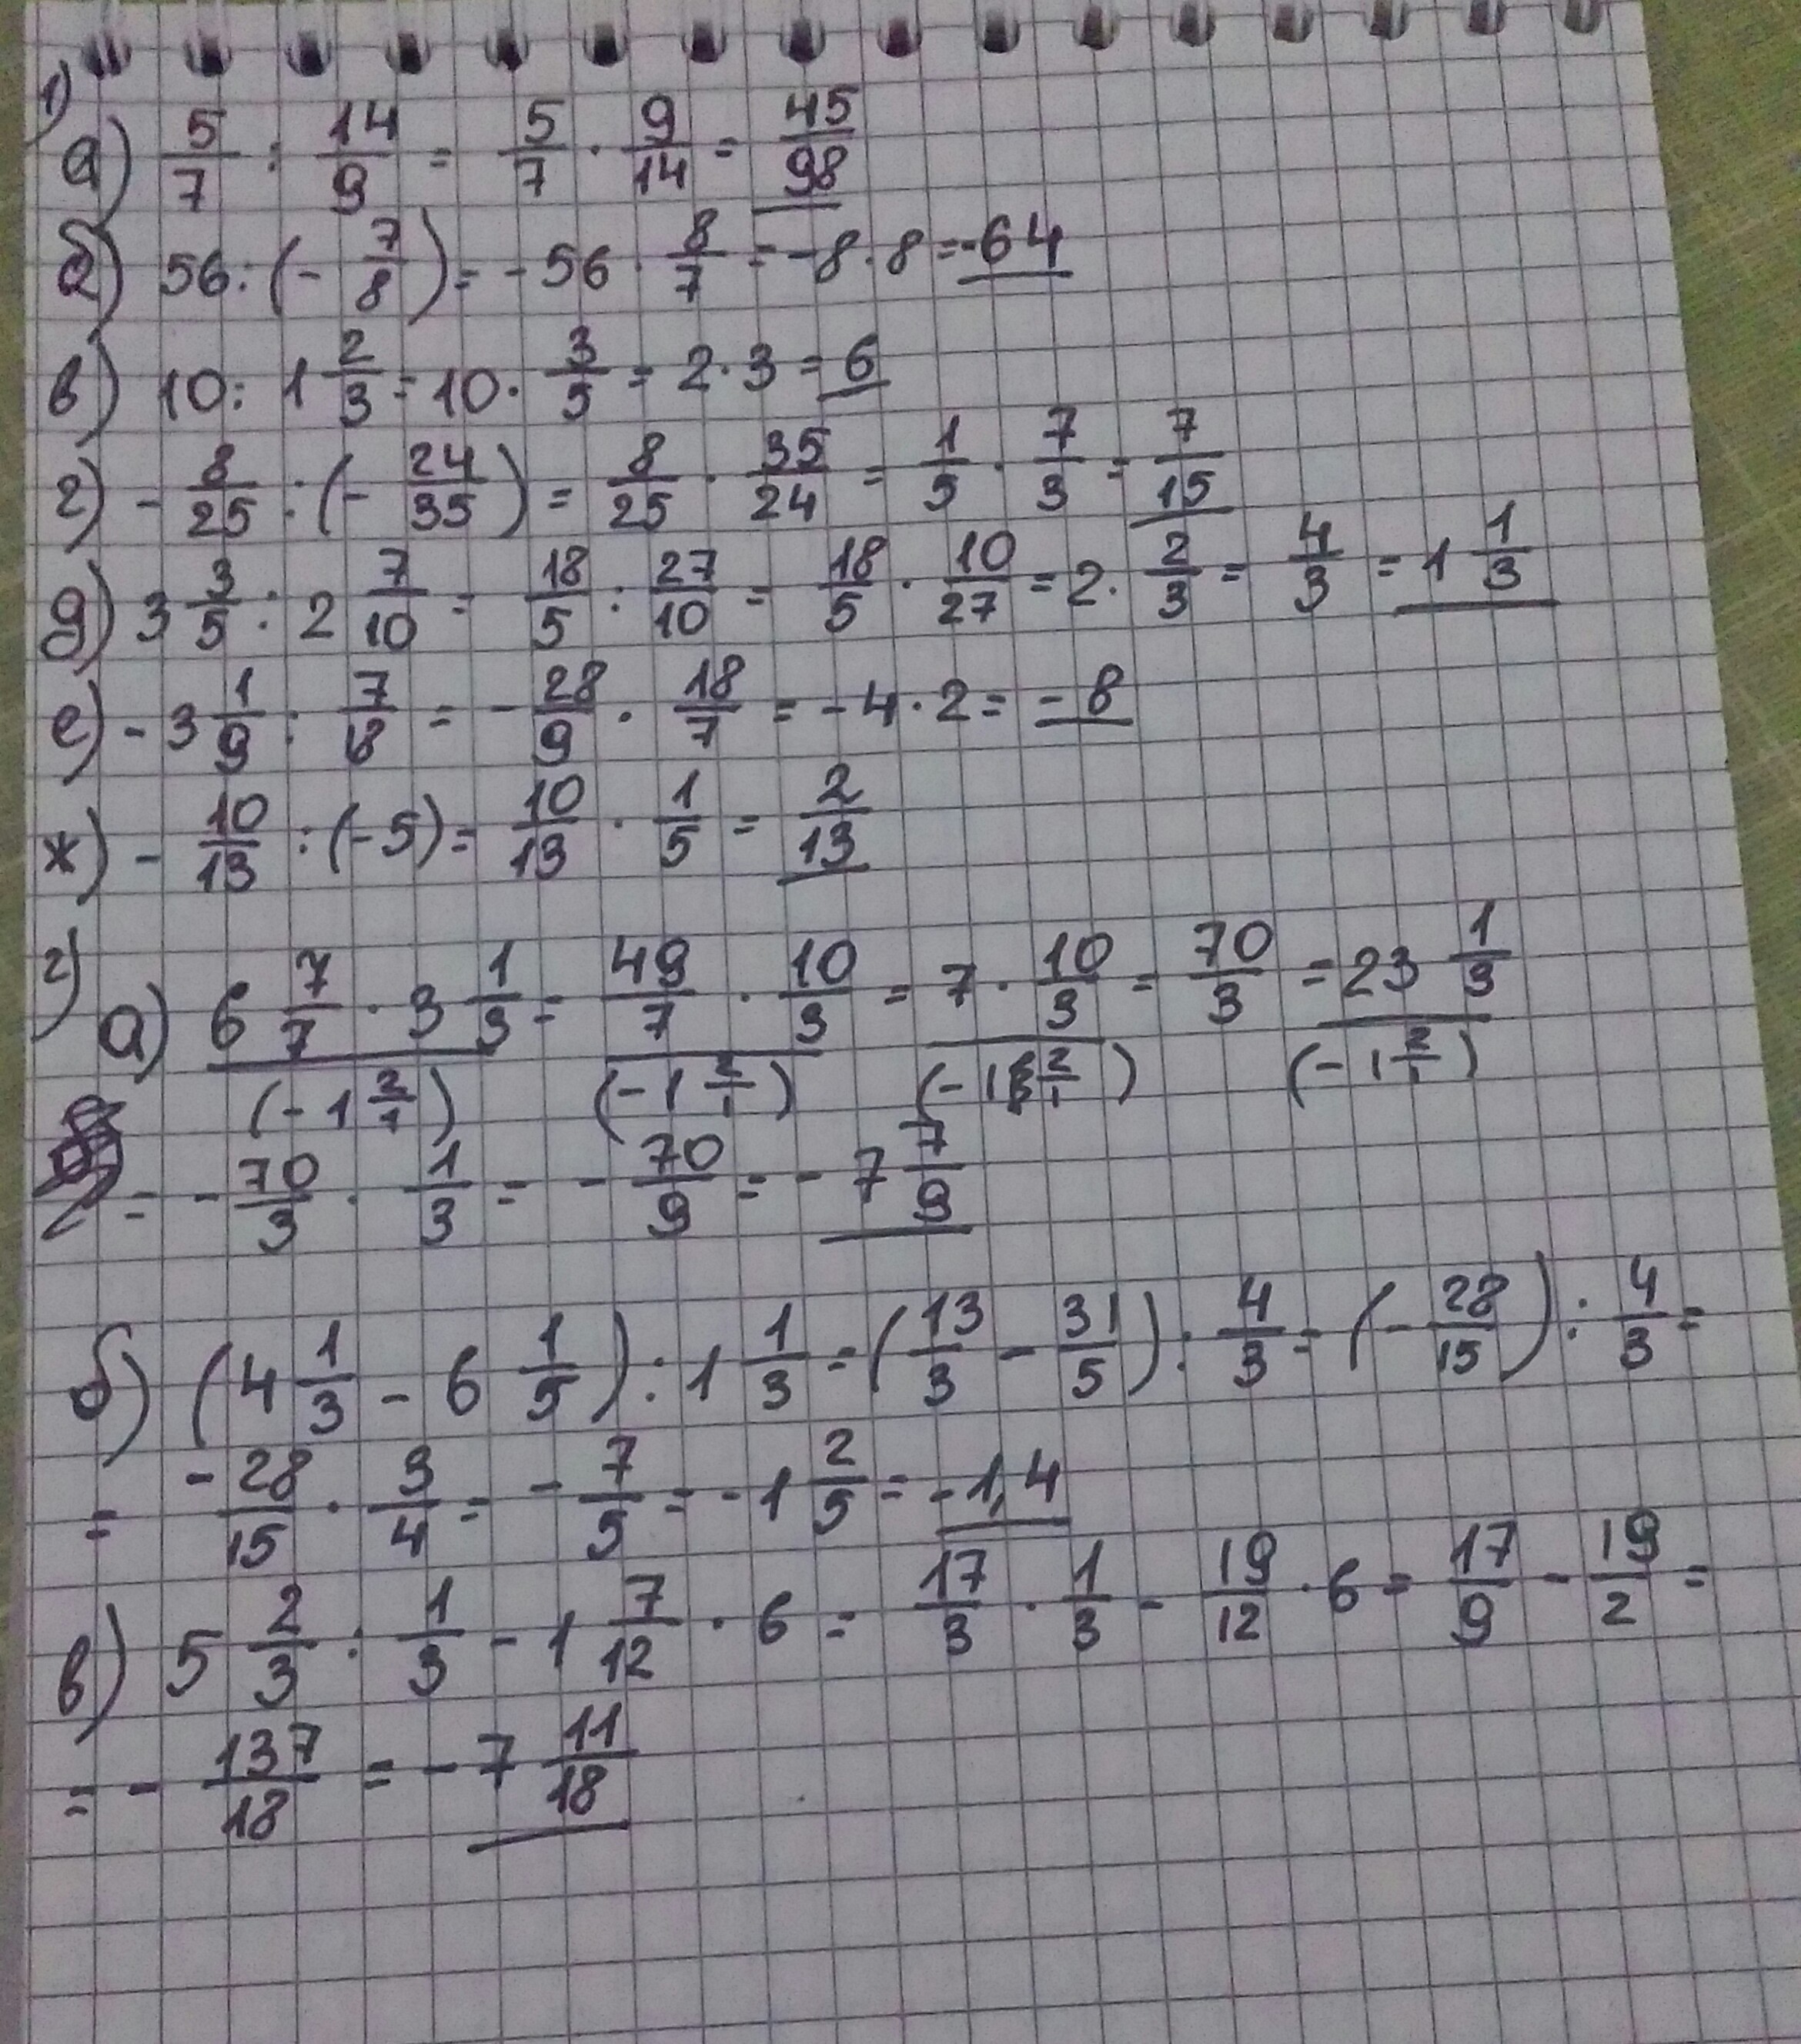 1)
а) 5/7 : 14/9 = 5/7 · 9/14 = 45/98
б) 56 : (- 7/8) = - 56 · 8/7 = - 8 · 8 = -64
в) 10 : 1 2/3 = 10 · 3/5 = 2 · 3 = 6
г) - 8/25 : (- 24/35) = 8/25 · 35/24 = 1/5 · 7/3 = 7/15
д) 3 3/5 : 2 7/10 = 18/5 : 27/10 = 18/5 · 10/27 = 2 · 2/3 = 4/3 = 1 1/3
е) - 3 1/9 : 7/18 = - 28/9 · 18/7 = - 4 · 2 = - 8
ж) - 10/13 : (- 5) = 10/13 · 1/5 = 2/13
2)
а) 6 7/7 · 3 1/3 = 49/7 · 10/3 = 7 · 10/3 = 70/3 = 23 1/3
(- 1 2/1) (- 1 2/1) (- 1 2/1) (- 1 2/1)
= - 70/3 · 1/3 = - 70/9 = - 7 7/9
б) (4 1/3 - 6 1/5) : 1 1/3 = (13/3 - 31/5) : 4/3 = (- 28/15) : 4/3 =
= - 28/15 · 3/4 = - 7/5 = - 1 2/5 = - 1,4
в) 5 2/3 · 1/3 - 1 7/12 · 6 = 17/3 · 1/3 - 19/12 · 6 = 17/9 - 19/2 =
= - 137/18 = - 7 11/18